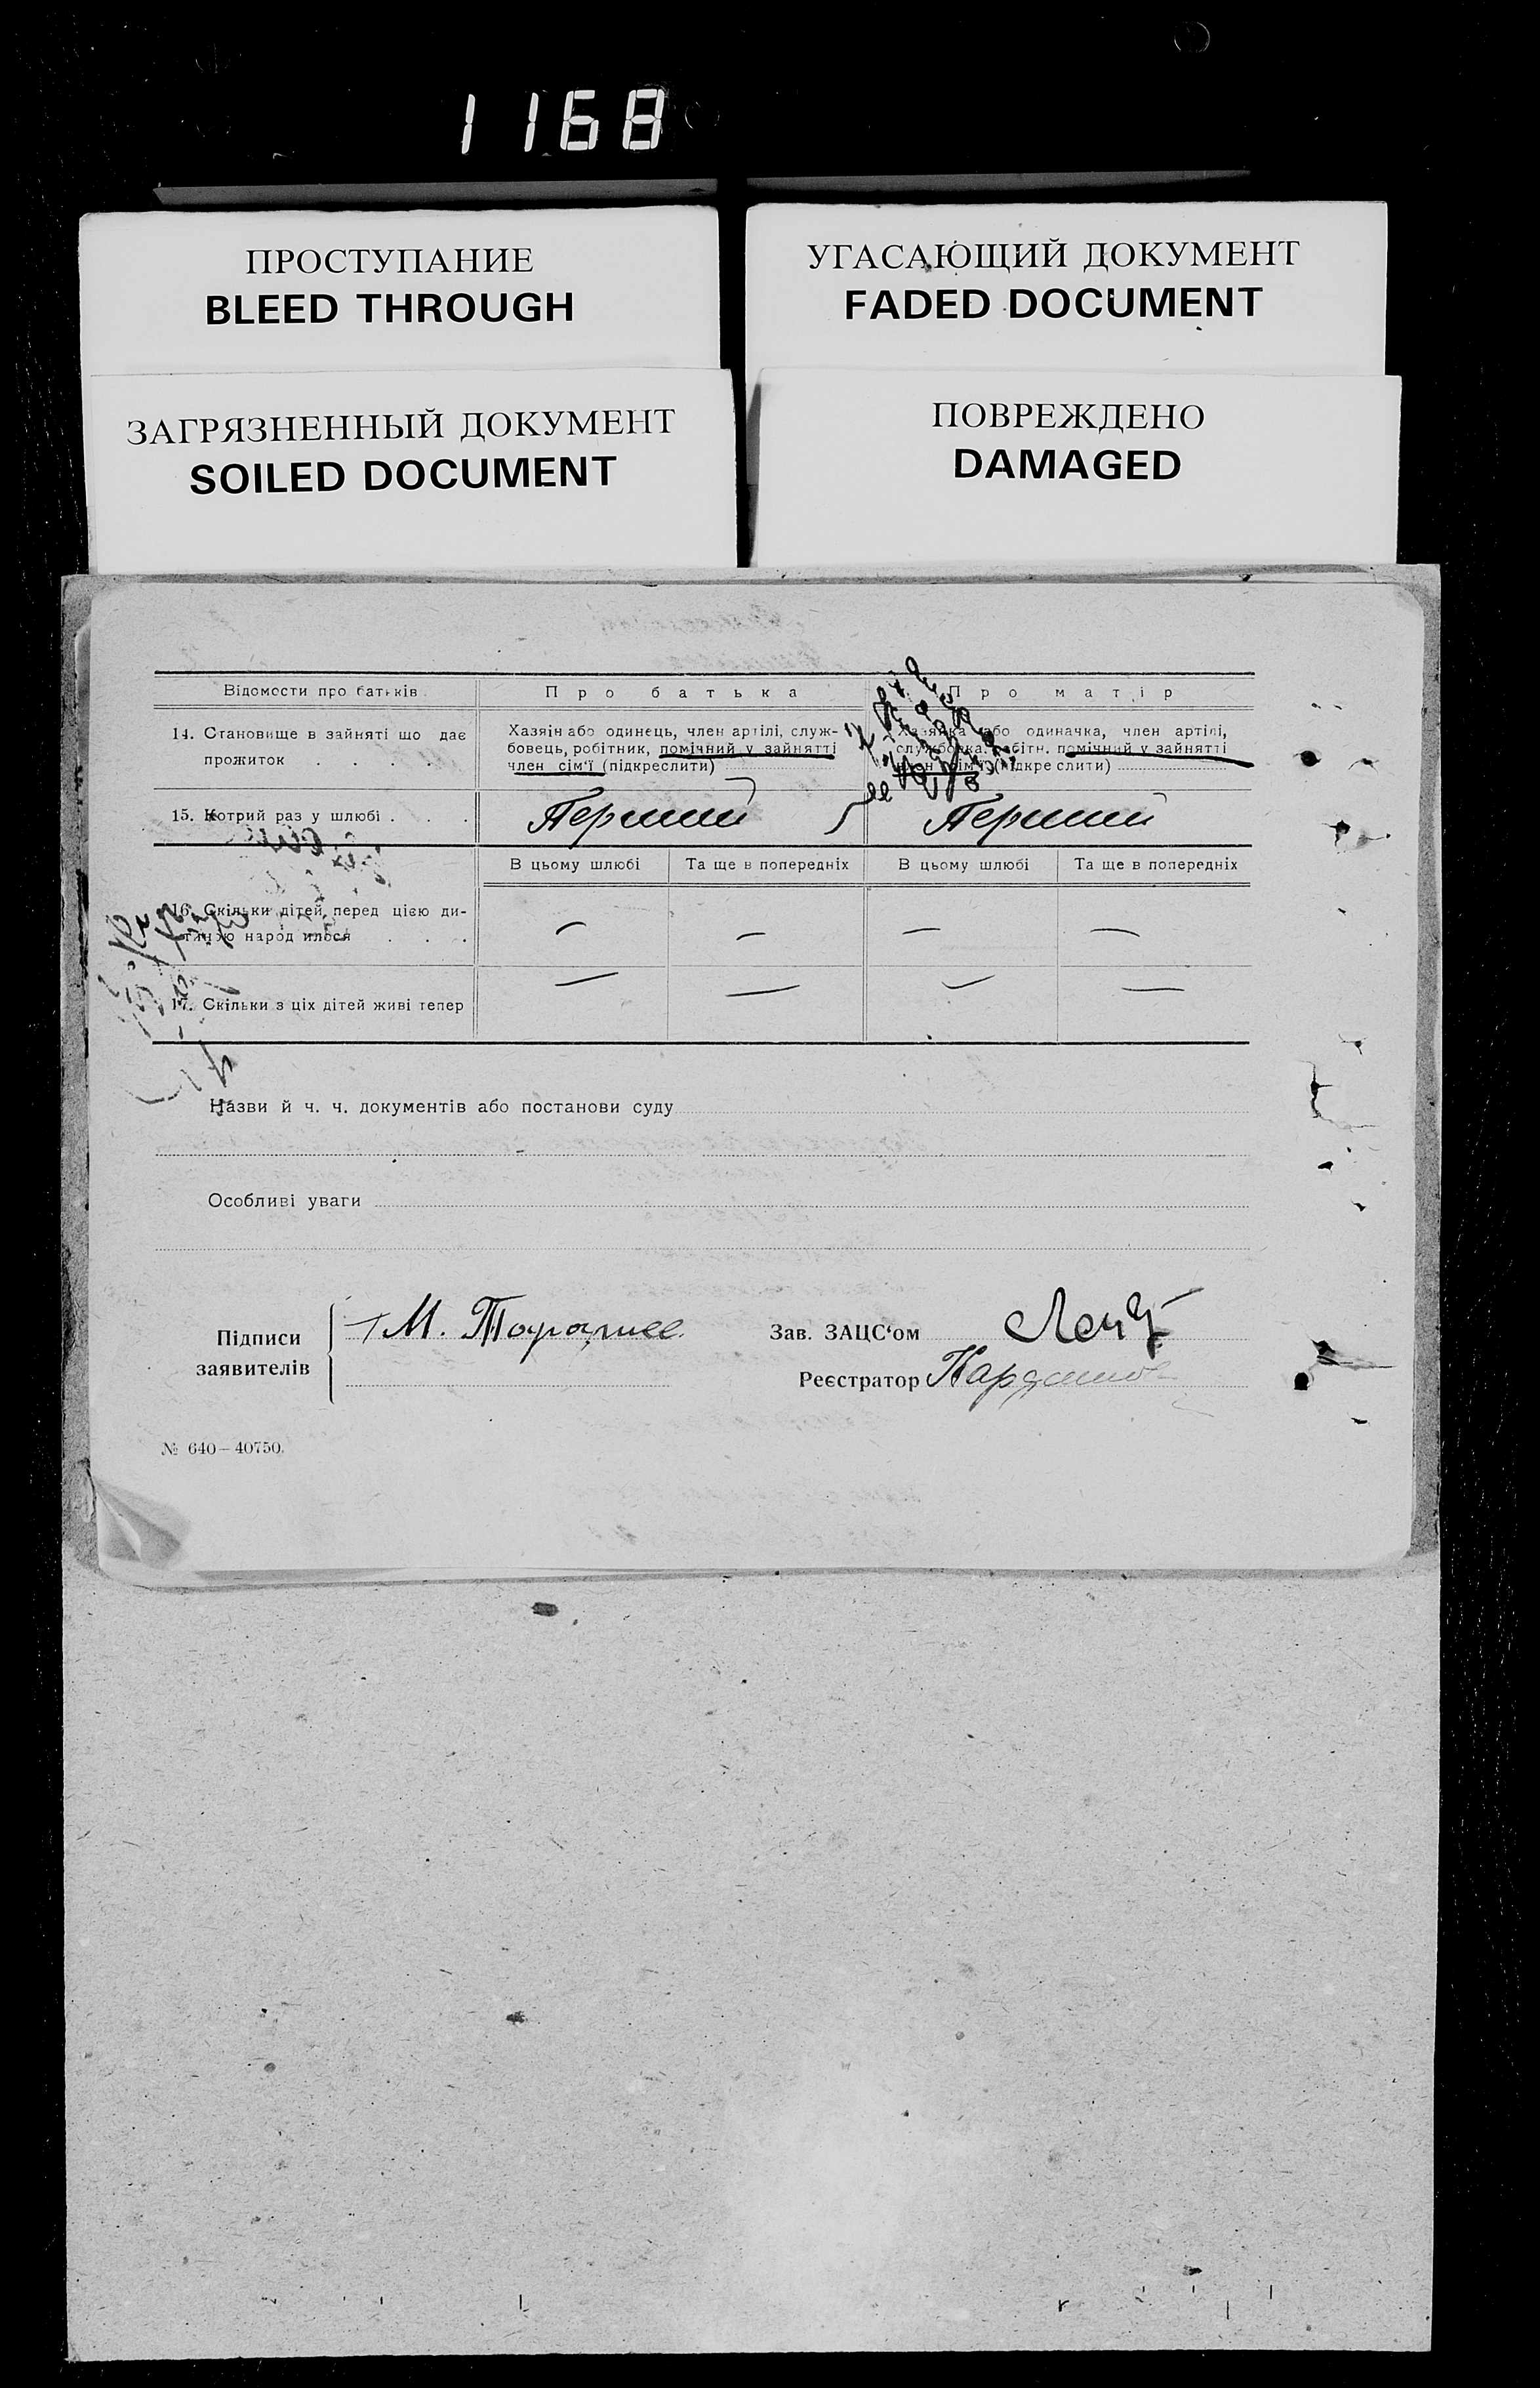 1168
ПРОСТУПАНИЕ
BLEED THROUGH
УГАСАЮЩИЙ ДОКУМЕНТ
FADED DOCUMENT
ЗАГРЯЗНЕННЫЙ ДОКУМЕНТ
SOILED DOCUMENT
ПОВРЕЖДЕНО
DAMAGED
Відомости про батьків
Про батька
Про матір
14. Становище в зайняті що дає
прожиток . . . .
Хазяін або одинець, член артілі, служ-
бовець, робітник, помічний у зайнятті
член сім'ї (підкреслити)
Хазяйка або одиначка, член артілі,
службовка, робітн. помічний у зайнятті
член сім'ї (підкре слити)
15. Котрий раз у шлюбі . . .
Перший
Перший
В цьому шлюбі
Та ще в попередніх
В цьому шлюбі
Та ще в попередніх
16. Скільки дітей перед цією ди-
тиною народилося . . .
— — — —
17. Скільки з ціх дітей живі тепер
— — — —
Назви й ч. ч. документів або постанови суду
Особливі уваги
Підписи
заявителів
М.
Зав. ЗАЦС'ом
Реєстратор
№ 640—40750.